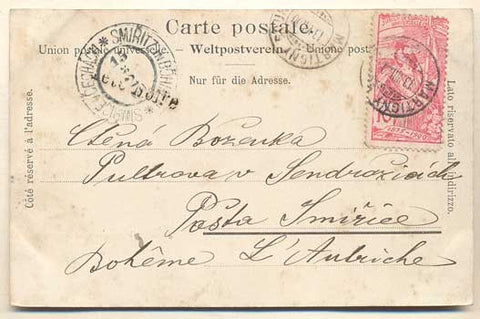 Carte postale.
Union postale universelle. – Weltpostverein. – Unione postale
Nur für die Adresse.
Côté réservé à l'adresse.
Lato riservato all'indirizzo.
MARTIGNY
MARTIGNY
SMIŘITZ IN BÖHMEN
Ctěná Boženka
Pultrova v Sendražicích
Pošta Smiřice
Bohême L'Autriche